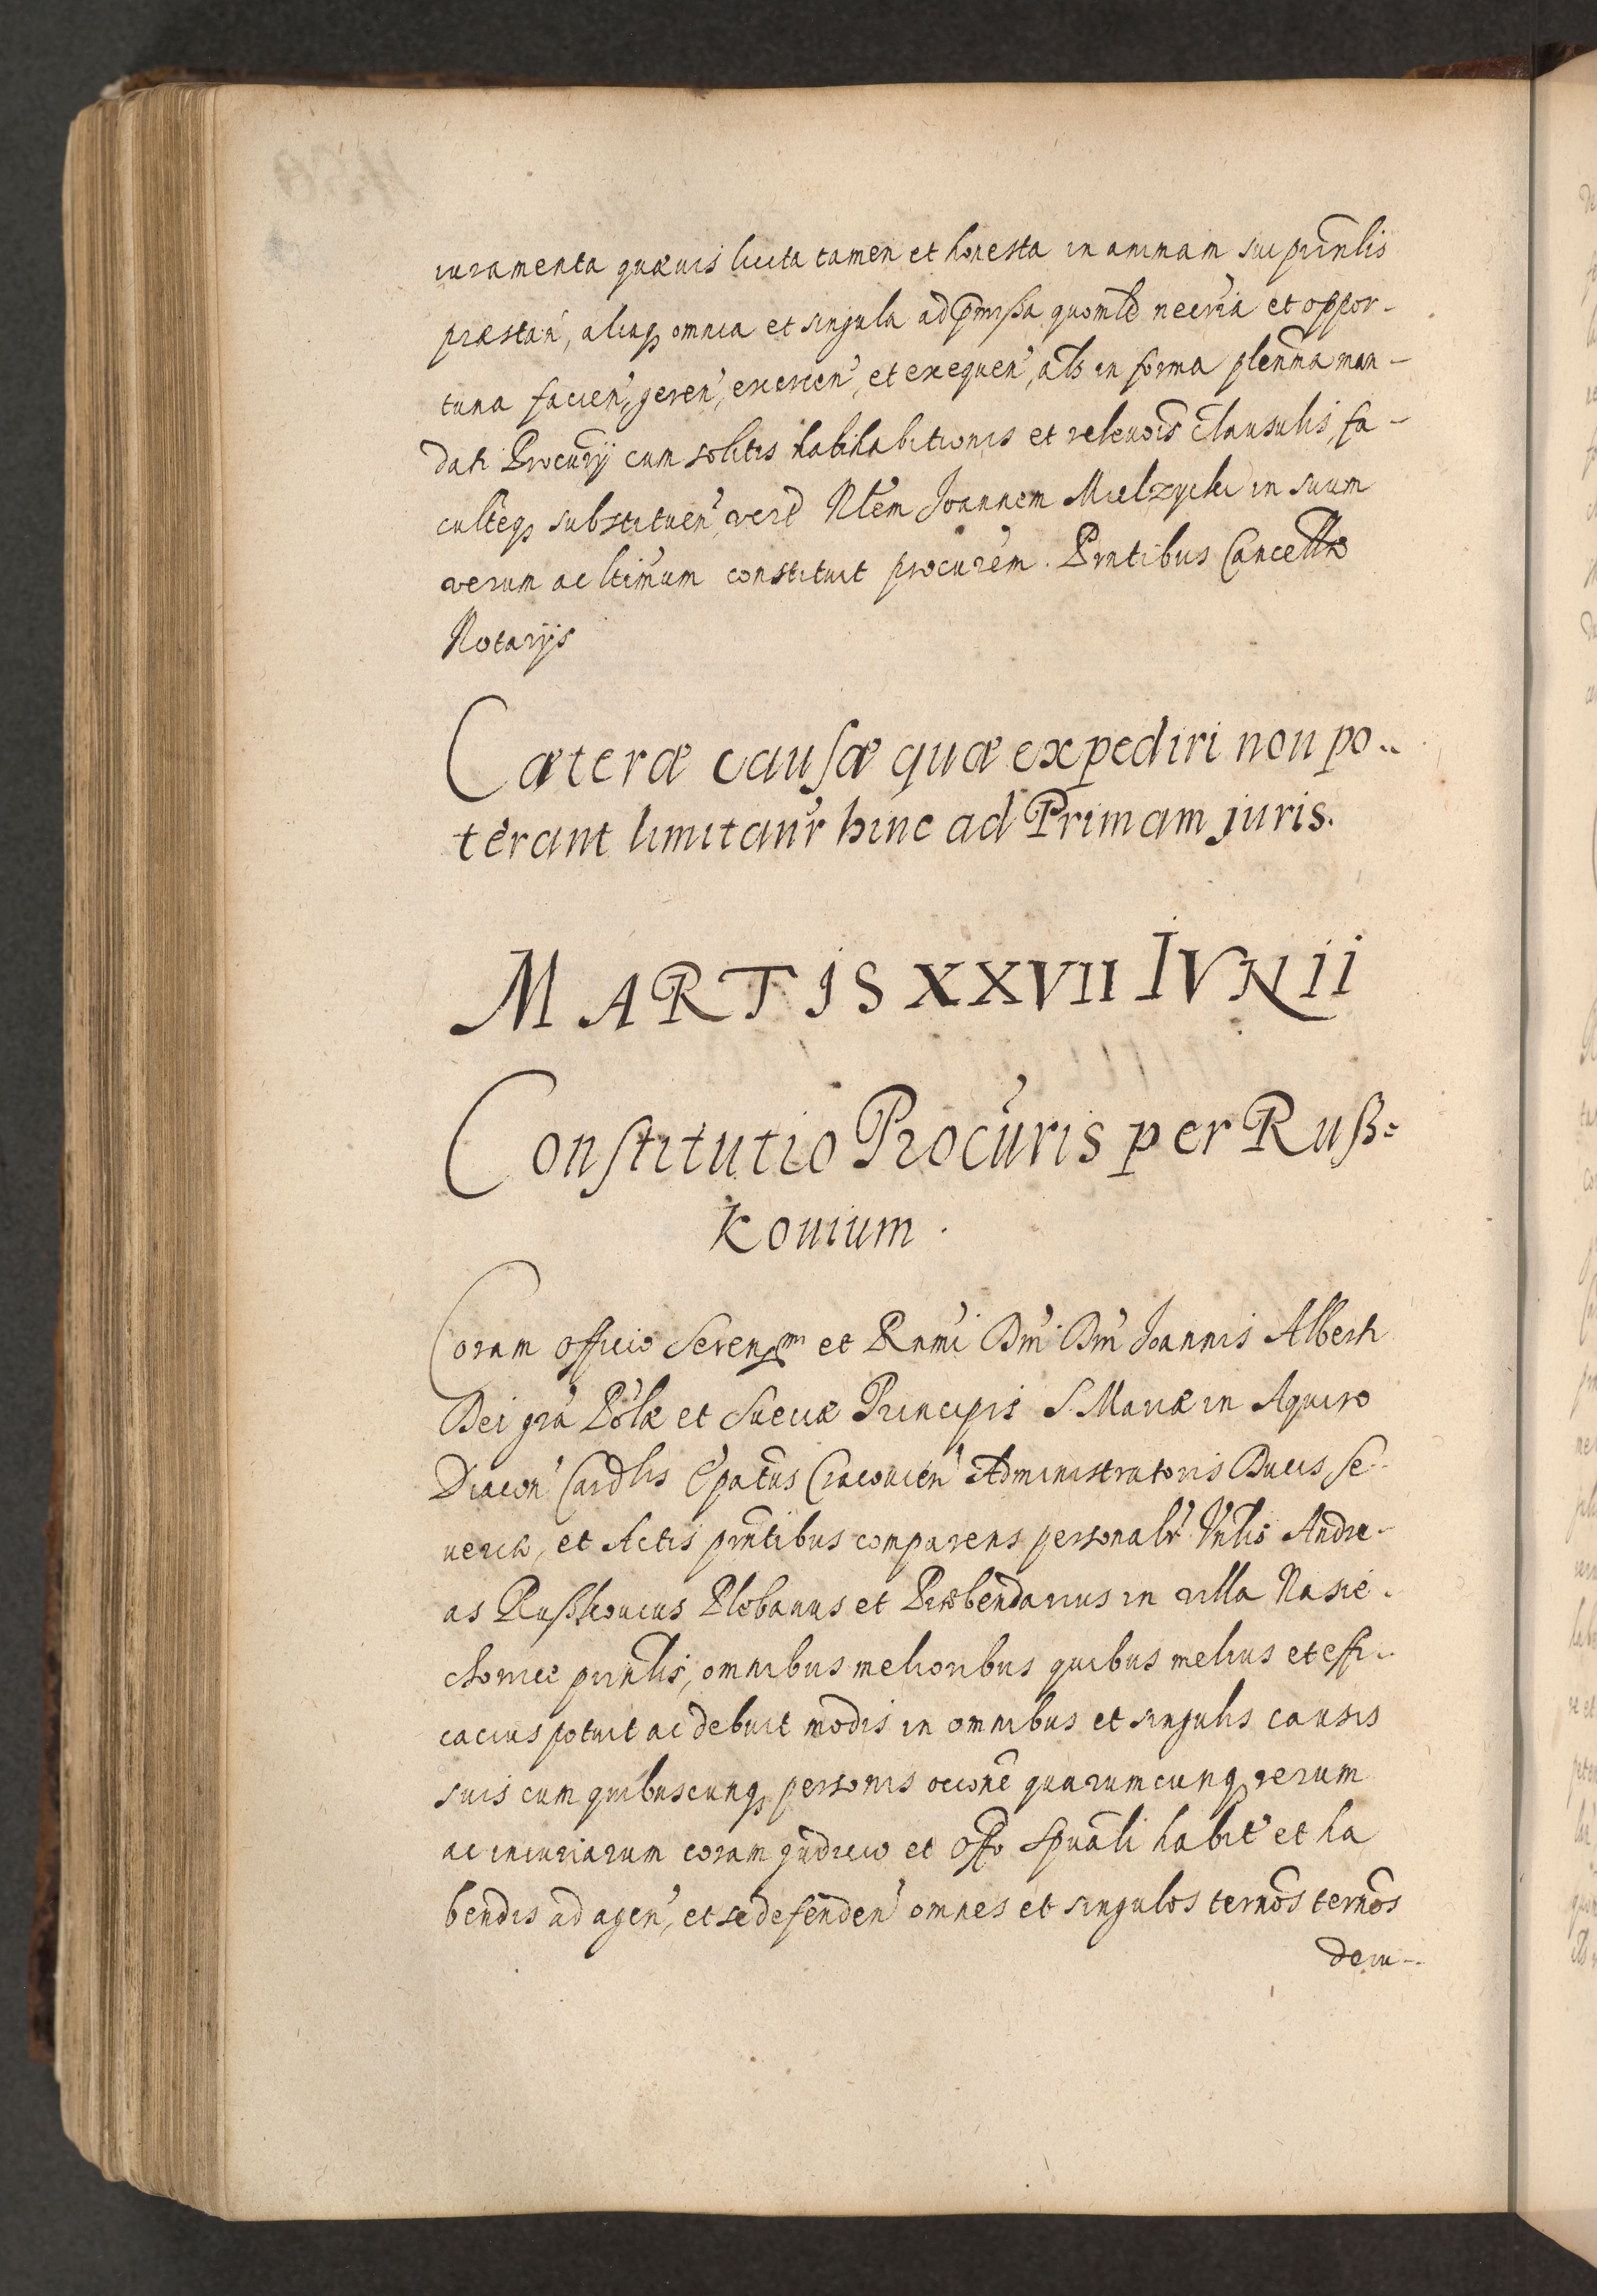 iuramenta quæuis licita tamen et honesta in animam sui prinlis
præstan', aliaq; omnia et singula ad pmißa quomld necria et oppor-
tuna facien', geren', exercen', et exequen', als in forma plenma man-
dati Procurÿ cum solitis ratihabitionis et releuois clausulis, fa-
cultteq; substituen', verd Nlem Joannem Mielzycki in suum
verum ac ltimum constituit procurem. Prntibus Cancellr
Notarÿs
Cæteræ causæ quæ expediri non po-
terant limitan'r hinc ad Primam juris.
MARTIS XXVII IVNii
Constitutio Procuris per Ruß-
kouium.
Coram officio Serenmi et Rnmi Dni Dni Joannis Alberti
Dei gra Polæ et Sueciæ Principis S. Mariæ in Aquiro
Diacon' Cardlis Epatus Cracouien' Administratoris Ducis Se-
ueriæ, et Actis prntibus comparens personalr Vnlis Andre-
as Rußkouius Plebanus et Præbendarius in villa Nasie-
chowice prinlis, omnibus melioribus quibus melius et effi-
cacius potuit ac debuit modis in omnibus et singulis causis
suis cum quibuscunq; personis occione quarumcunq; rerum
ac iniuriarum coram judicio et offo spuali habit' et ha
bendis ad agen', et se defenden' omnes et singulos ternos ternos